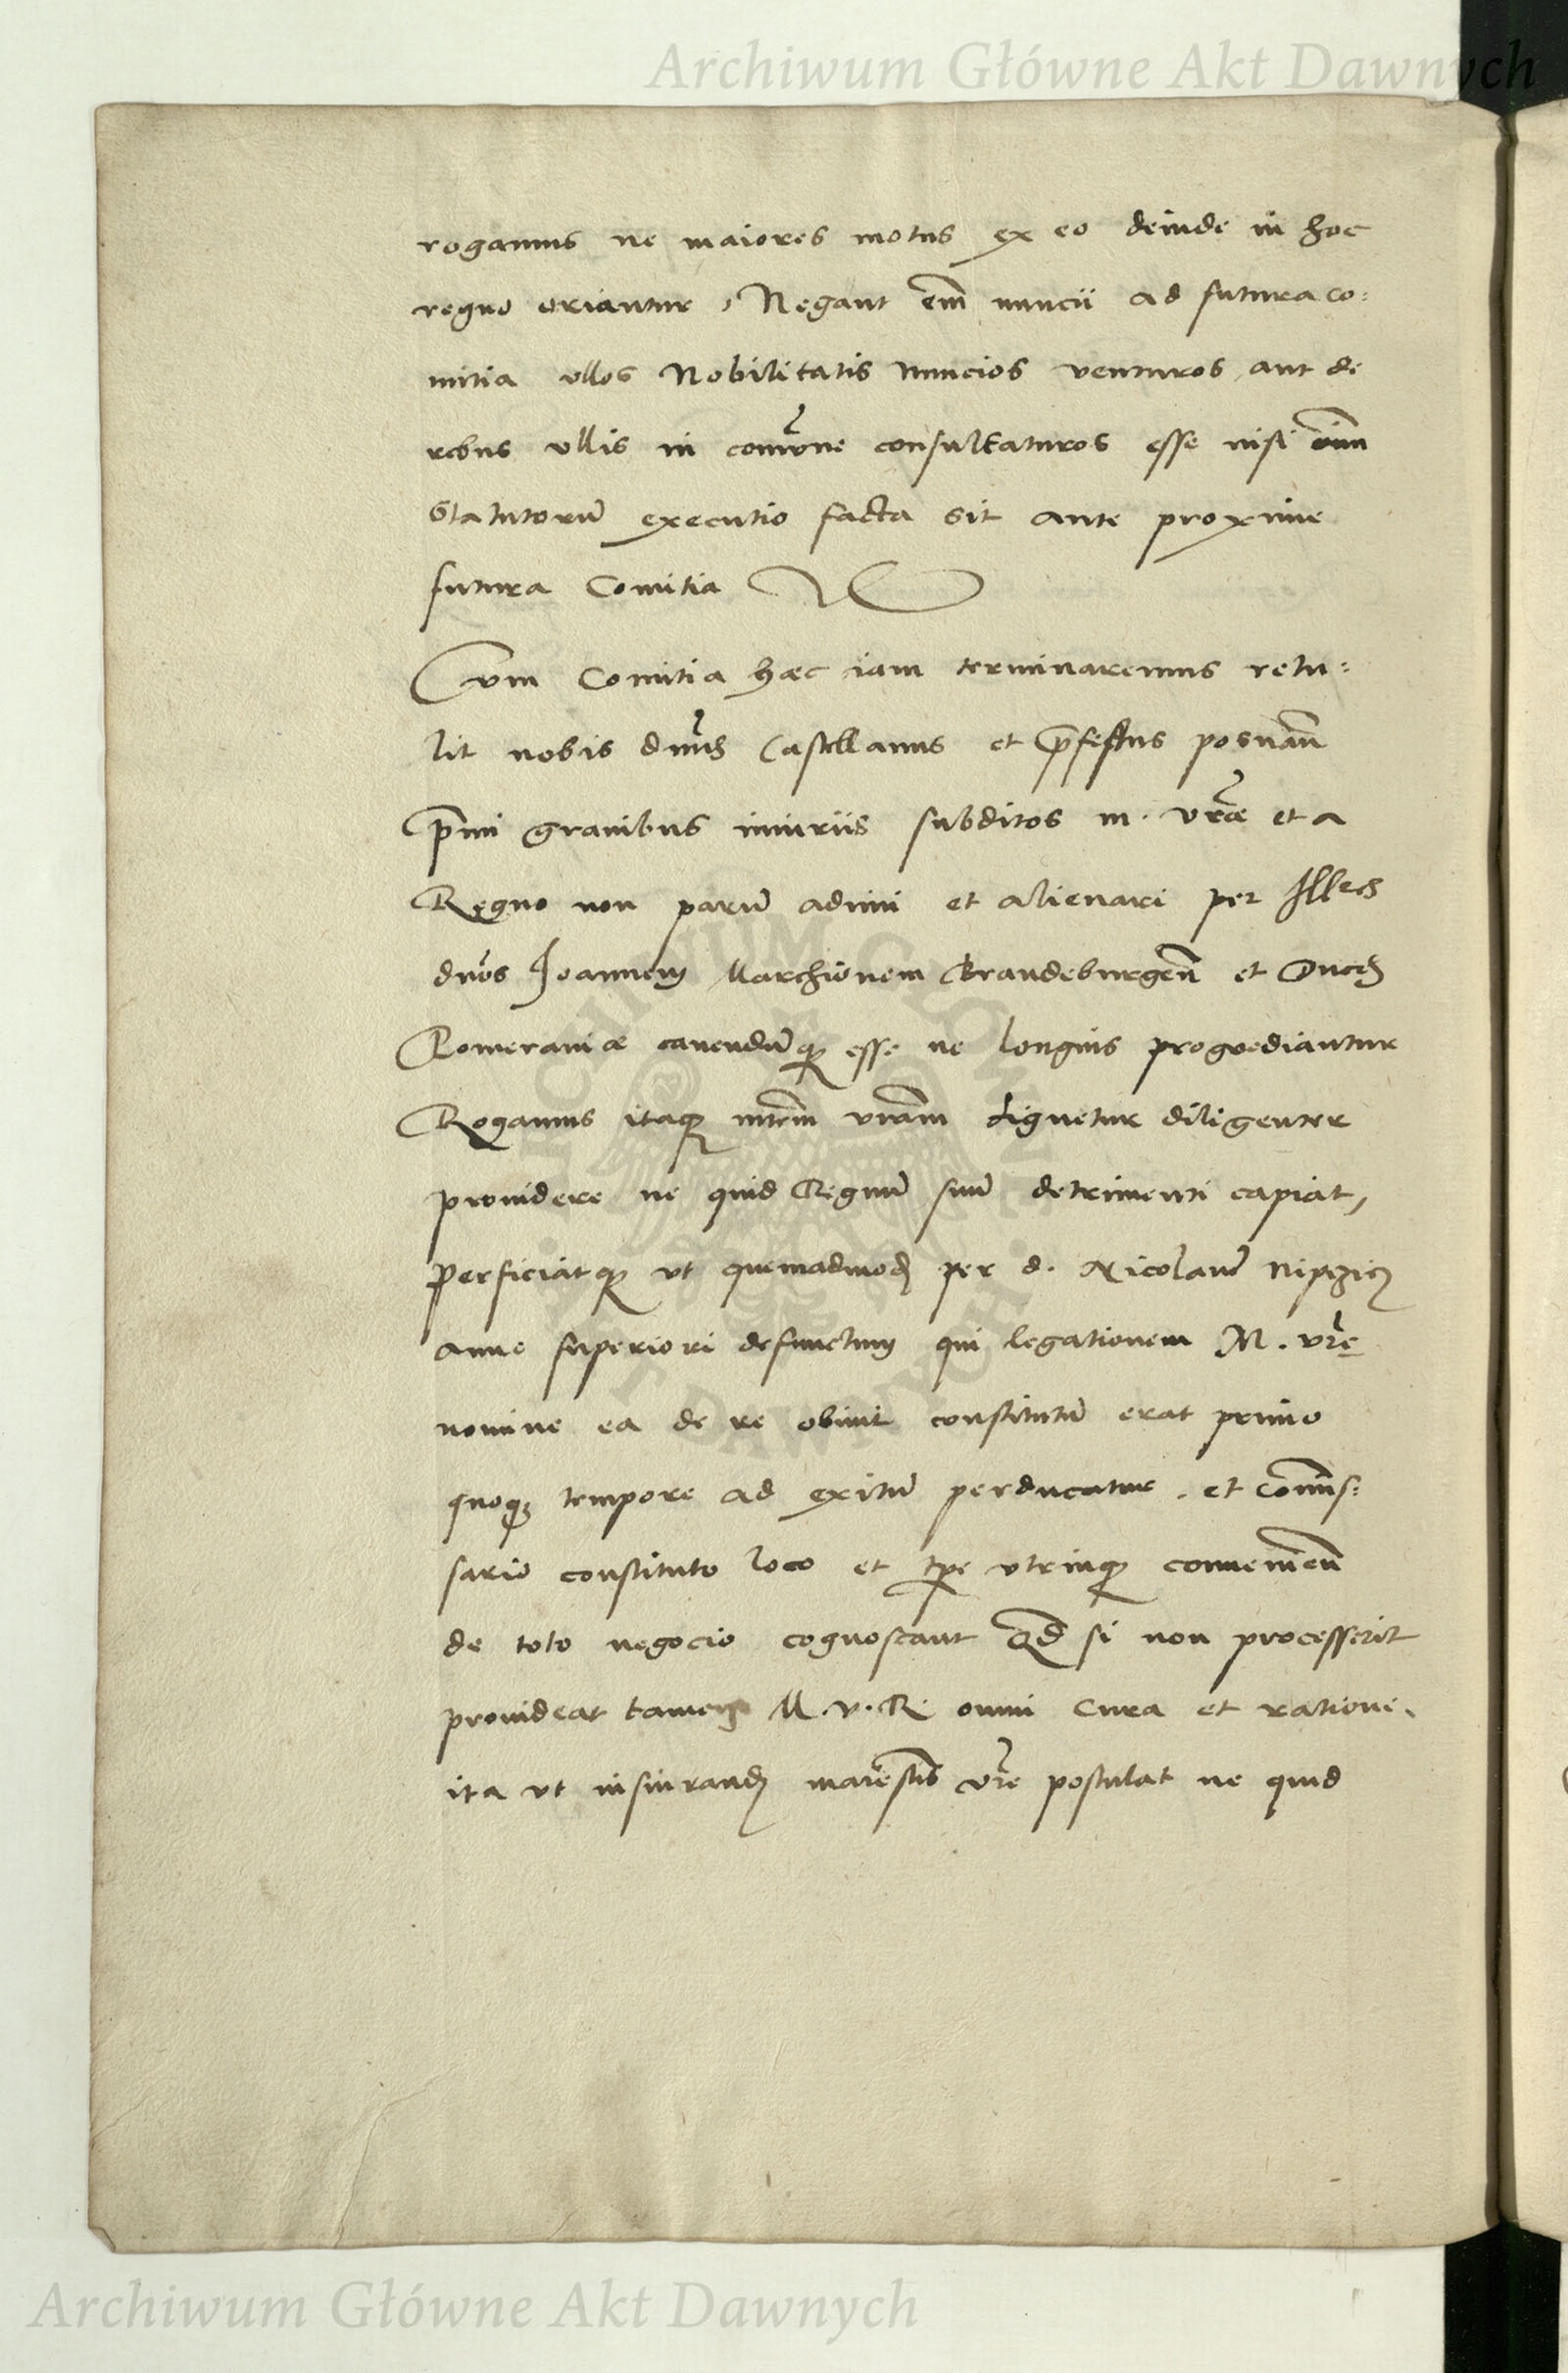 Archiwum Główne Akt Dawnych
rogamus ne maiores motus ex eo deinde in hoc
regno oriantur, Negant em̄ nuncii ad futura co:
mitia ullos Nobilitatis nuncios venturos aut de
rebus ullis in comune consultaturos esse nisi oīm
Statutorū executio facta sit ante proxime
futura Comitia
Cum Comitia hæc iam terminaremus retu:
lit nobis dnus Castellanus et p̄fectus posnan̄
p̄mi gravibus iniuriis subditos m. vræ et a
Regno non parū adimi et alienari per Illes
dnos Joannem Marchionem Brandeburgen̄ et Duce
Pomeraniæ cavendūq esse ne longius progrediantur
Rogamus itaq mtem̄ vram̄ dignetur diligenter
providere ne quid Regnū suū detrimenti capiat,
Perficiatq ut quemadmod per d. Nicolaū Nipszicz
anno superiori defunctum qui legationem M. vrę
nomine ea de re obiuit constitutū erat primo
quoq tempore ad exitū perducatur. et Comis:
sario constituto loco et tpe utrinq convenien̄
de toto negocio cognoscant Qd si non processerit
provideat tamen M. v. R. omni cura et ratione.
ita ut iusiurand maiestatis vre postulat ne quid
Archiwum Główne Akt Dawnych